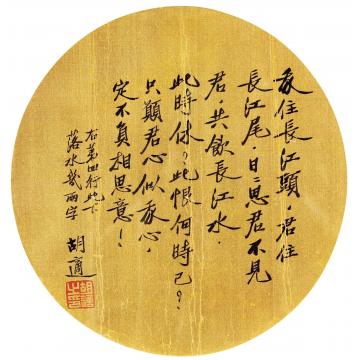 我住長江頭，君住
長江尾，日〻思君不見
君，共飲長江水。
此時休？此恨何時已？
只願君心似我心，
定不負相思意！
右第四行此下
落水幾兩字
胡適